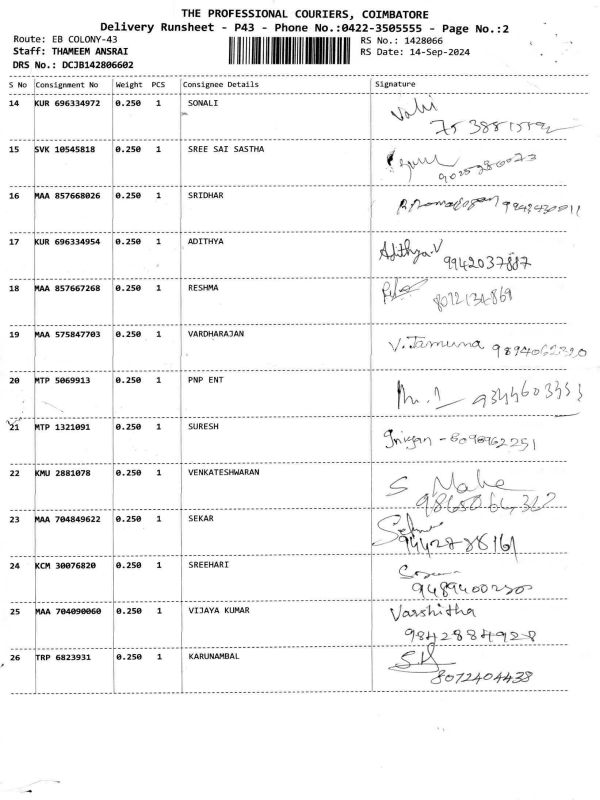 THE PROFESSIONAL COURIERS, COIMBATORE
Delivery Runsheet - P43 - Phone No.:0422-3505555 - Page No.:2
Route: EB COLONY-43
RS No.: 1428066
Staff: THAMEEM ANSRAI
RS Date: 14-Sep-2024
DRS No.: DCJB142806602
S No Consignment No Weight PCS Consignee Details Signature
14 KUR 696334972 0.250 1 SONALI
15 SVK 10545818 0.250 1 SREE SAI SASTHA
16 MAA 857668026 0.250 1 SRIDHAR
17 KUR 696334954 0.250 1 ADITHYA Adithya.V
9942037887
18 MAA 857667268 0.250 1 RESHMA
19 MAA 575847703 0.250 1 VARDHARAJAN V. Jamuna 9894062320
20 MTP 5069913 0.250 1 PNP ENT
21 MTP 1321091 0.250 1 SURESH
22 KMU 2881078 0.250 1 VENKATESHWARAN
23 MAA 704849622 0.250 1 SEKAR
24 KCM 30076820 0.250 1 SREEHARI
25 MAA 704090060 0.250 1 VIJAYA KUMAR Varshitha
9842884928
26 TRP 6823931 0.250 1 KARUNAMBAL
8072404438